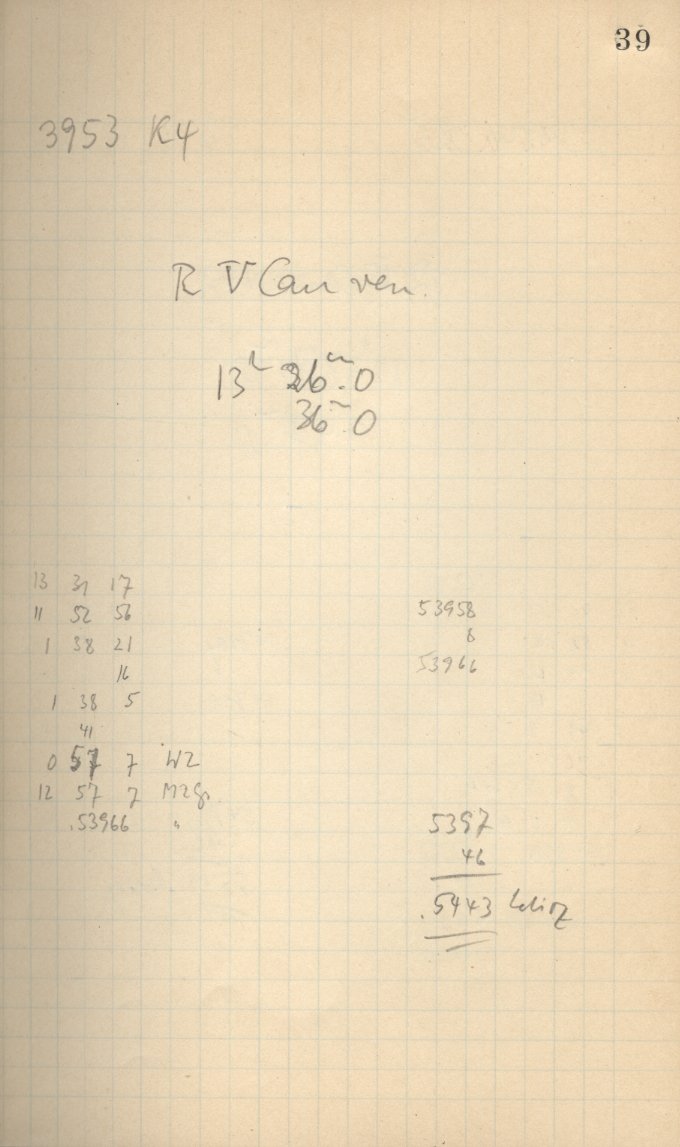 39
3953 K4
R V Can ven.
13ʰ 26ᵐ.0
36ᵐ.0
13 31 17
11 52 56
1 38 21
16
1 38 5
41
0 57 7 WZ
12 57 7 MZGr.
.53966 "
53958
8
53966
5397
46
.5443